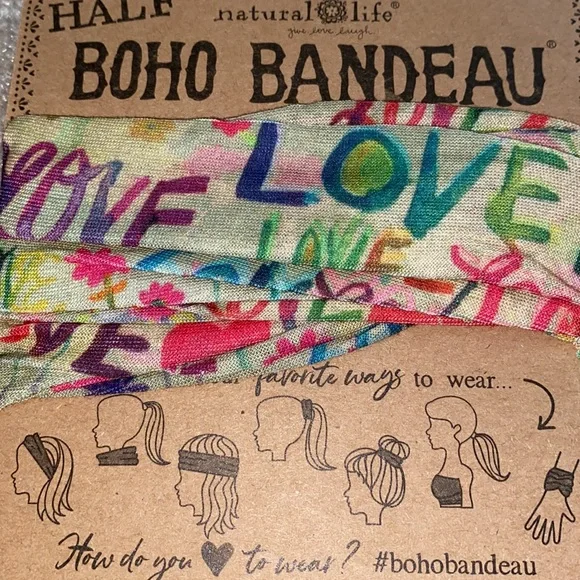 HALF
natural life®
give love laugh
BOHO BANDEAU®
LOVE
LOVE
LOVE
favorite ways to wear...
How do you ♥ to wear? #bohobandeau